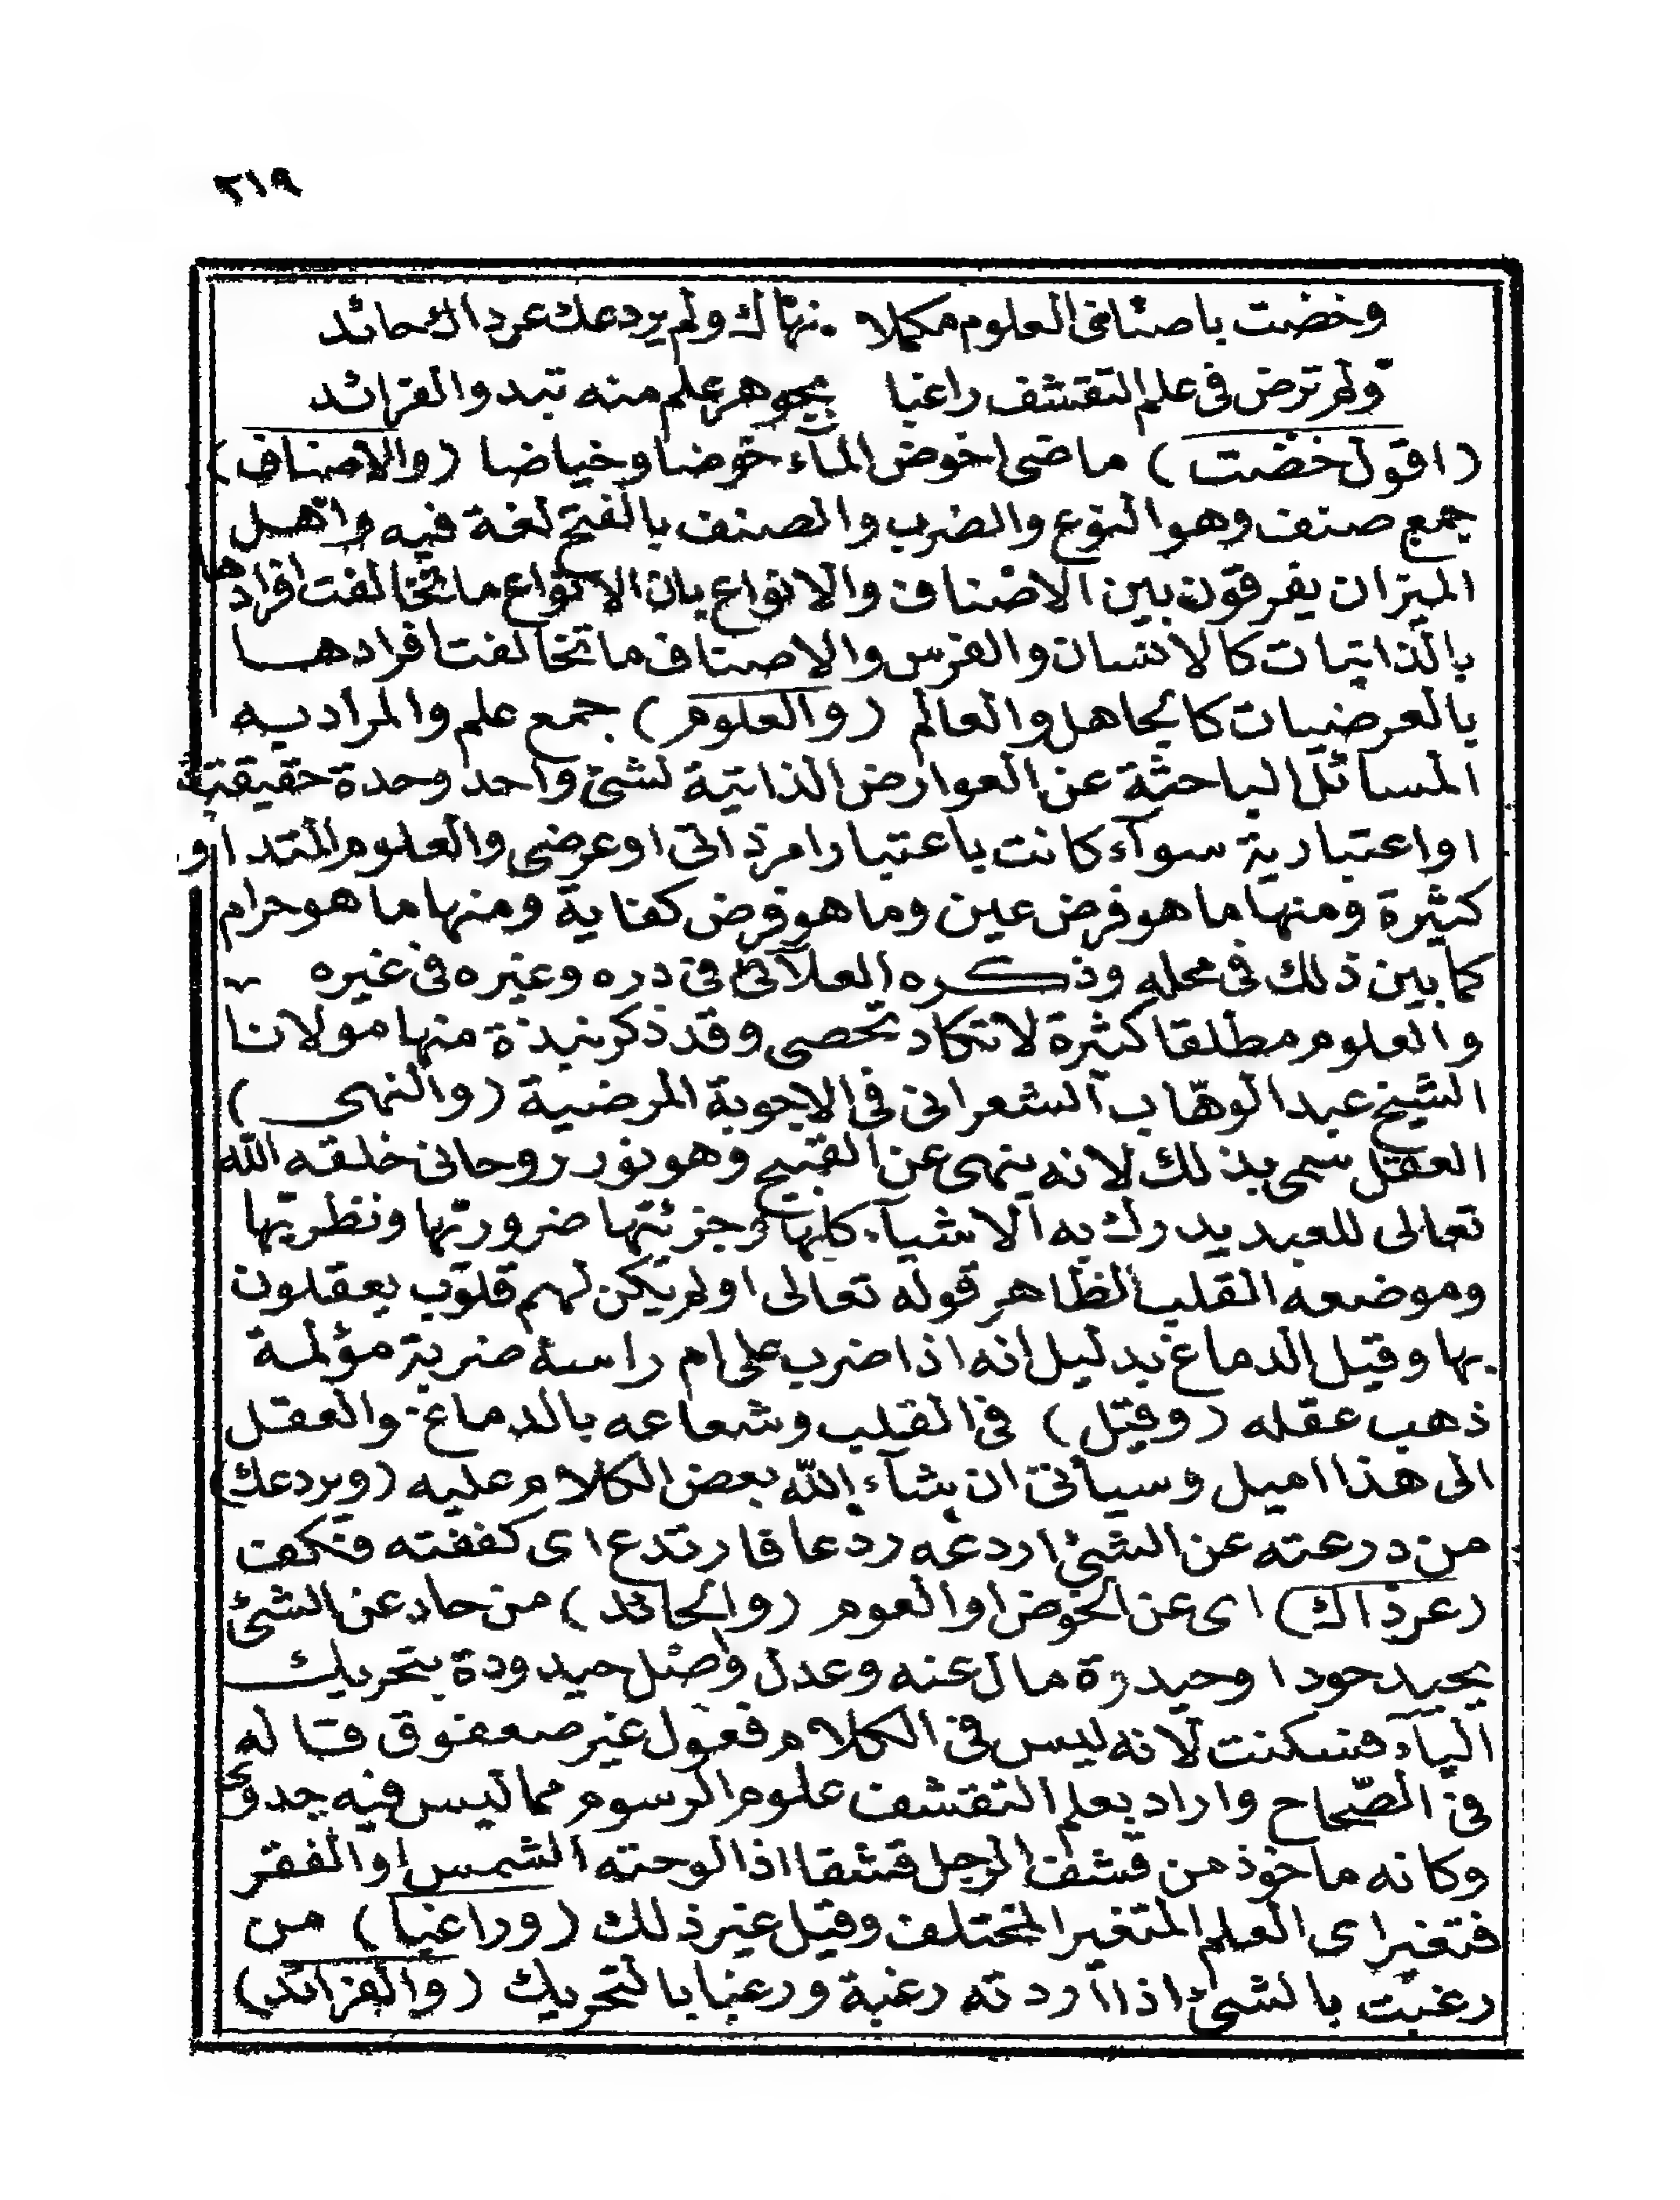 ٢١٩
وخضت باصناف العلوم مكملا نهاك ولم يردعك عن ذاك حائد
ولم ترض فى علم التقشف راغبا بجوهر علم منه تبدو الفرائد
(اقول خضت) ماضى اخوض المآء خوضا وخياضا (والاصناف)
جمع صنف وهو النوع والضرب والصنف بالفتح لغة فيه واهل
الميزان يفرقون بين الاصناف والانواع بان الانواع ما تخالفت افرادها
بالذاتيات كالانسان والفرس والاصناف ما تخالفت افرادها
بالعرضيات كالجاهل والعالم (والعلوم) جمع علم والمراد به
المسائل الباحثة عن العوارض الذاتية لشئ واحد وحدة حقيقتية
او اعتبارية سوآء كانت باعتبار امر ذاتى او عرضى والعلوم المتداو
كثيرة ومنها ما هو فرض عين وما هو فرض كفاية ومنها ما هو حرام
كما بين ذلك فى محله وذكره العلآئى فى دره وغيره فى غيره
والعلوم مطلقا كثيرة لا تكاد تحصى وقد ذكر نبذة منها مولانا
الشيخ عبد الوهاب الشعرانى فى الاجوبة المرضية (والنهى)
العقل سمى بذلك لانه ينهى عن القبيح وهو نور روحانى خلقه الله
تعالى للعبد يدرك به الاشيآء كلها وجزئتها ضرورتها ونظريتها
وموضعه القلب الظاهر قوله تعالى اولم يكن لهم قلوب يعقلون
بها وقيل الدماغ بدليل انه اذا ضرب على ام راسه ضربة مؤلمة
ذهب عقله (وقيل) فى القلب وشعاعه بالدماغ والعقل
الى هذا اميل وسياتى ان شآء الله بعض الكلام عليه (ويردعك)
من درعته عن الشئ اردعه ردعا فارتدع اى كففته فنكف
(عن ذاك) اى عن الخوض او العوم (والحائد) من حاد عن الشئ
يحيد حودا وحيدة مال عنه وعدل واصل حيدودة بتحريك
اليآء فسكنت لانه ليس فى الكلام فعول غير صعفوق قاله
فى الصّحاح واراد بعلم التقشف علوم الرسوم مما ليس فيه جدوى
وكانه ماخوذ من قشف الرجل قشفا اذا لوحته الشمس او الفقر
فتغير اى العلم المتغير المختلف وقيل غير ذلك (وراغبا) من
رغبت بالشئ اذا اردته رغبة ورغبا بالتحريك (والفرائد)